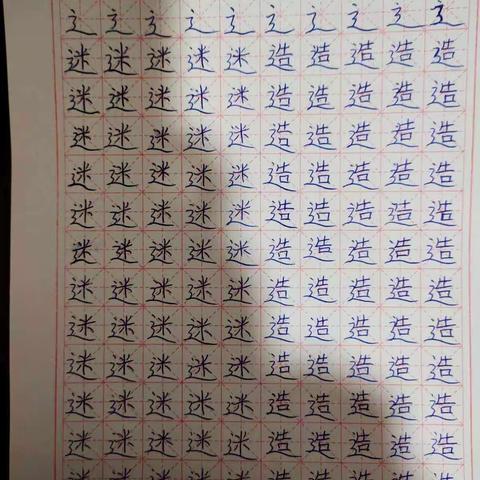 辶辶辶辶辶辶辶辶辶辶
迷迷迷迷迷造造造造造
迷迷迷迷迷造造造造造
迷迷迷迷迷造造造造造
迷迷迷迷迷造造造造造
迷迷迷迷迷造造造造造
迷迷迷迷迷造造造造造
迷迷迷迷迷造造造造造
迷迷迷迷迷造造造造造
迷迷迷迷迷造造造造造
迷迷迷迷迷造造造造造
迷迷迷迷迷造造造造造